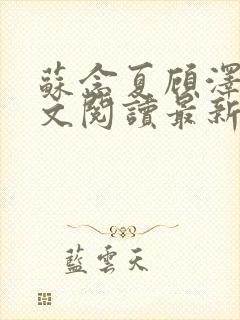 蘇念夏顾澤
文閱讀最新
藍雲天